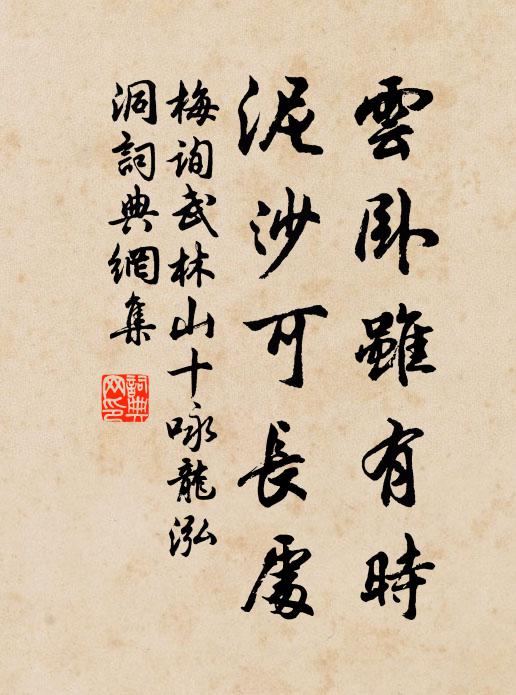 雲卧雖有時
泥沙可長處
梅詢武林山十咏龍泓
洞詞典網集
詞典網印